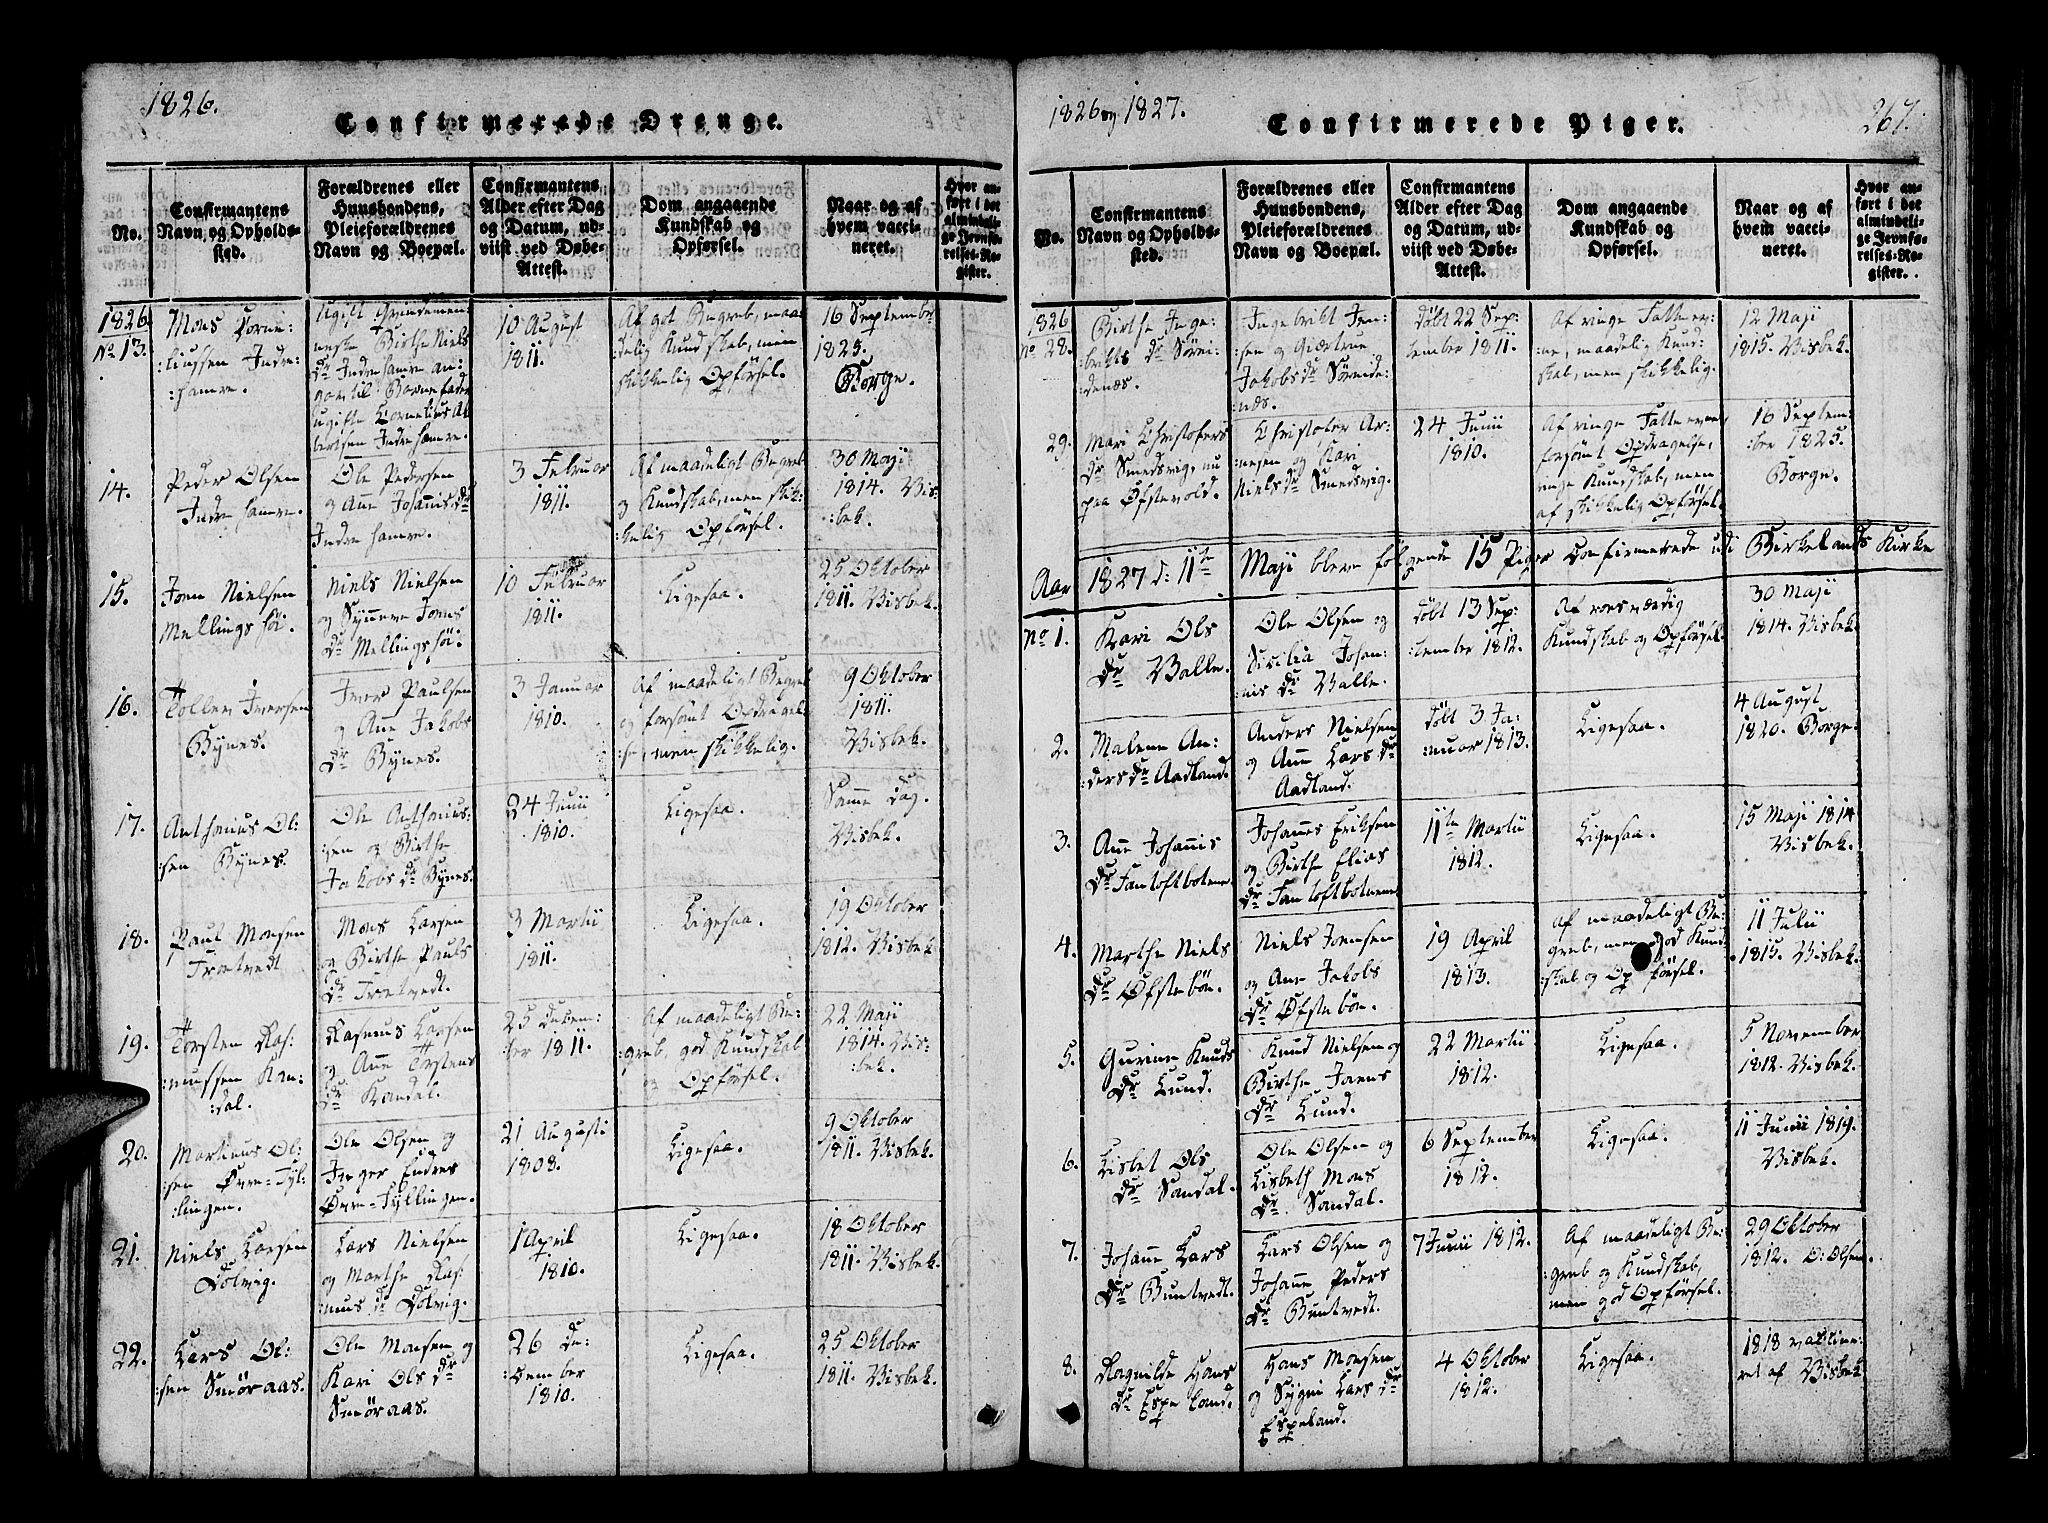 1826.
Confirmerede Drenge.
No.
Confirmantens
Navn og Opholds-
sted.
Forældrenes eller
Huusbondens,
Pleieforældrenes
Navn og Boepæl.
Confirmantens
Alder efter Dag
og Datum, ud-
viist ved Døbe-
Attest.
Dom angaaende
Kundskab og
Opførsel.
Naar og af
hvem vacci-
neret.
Hvor an-
ført i det
almindeli-
ge Jevnfø-
relses-Re-
gister.
1826
No 13.
Mons Corne-
:liussen Indre-
:hamre.
Ugift Qvindemen-
neske Birthe Niels
Dr Indrehamre an-
gav til Barnefader
ugifte Cornelius Al
bertsen Indrehamre.
10 August
1811.
Af got Begreb, maa-
delig Kundskab, men
skikkelig Opførsel.
16 September
1825.
Borge.
14.
Peder Olsen
Indrehamre.
Ole Pedersen
og Ane Johannis Dr
Indrehamre.
3 Februar
1811.
Af maadeligt Begreb
og Kundskab, men skik-
kelig Opførsel.
30 Maji
1814. Vis-
:bek.
15.
Joen Nielsen
Mellingshøi.
Niels Nielsen
og Synneve Joens
Dr Mellingshøi.
10 Februar
1811.
Ligesaa.
25 Oktober
1811. Visbek.
16.
Tollev Iversen
Bynes.
Iver Paulsen
og Ane Jakobs
Dr Bynes.
3 Januar
1810.
Af maadeligt Begreb
og forsømt Opdragel-
:se, men skikkelig.
9 Oktober
1811.
Visbek.
17.
Anthonius Ol-
sen Bynes.
Ole Anthonius-
:sen og Birthe
Jakobs Dr Bynes.
24 Junii
1810.
Ligesaa.
Samme Dag.
Visbek.
18.
Paul Monsen
Trætvedt
Mons Larsen
og Birthe Pauls
Dr Trætvedt.
3 Martii
1811.
Ligesaa.
19 Oktober
1812. Visbek.
19.
Torsten Ras-
:mussen Kan-
:dal.
Rasmus Larsen
og Ane Torstens
Dr Kandal.
25 Decem-
:ber 1811.
Af maadeligt Be-
:greb, god Kundskab
og Opførsel.
22 Maji
1814. Vis-
:bek.
20.
Martinus Ol-
:sen Øvre-Tyl-
:lingen.
Ole Olsen og
Inger Endres
Øvre-Tyllingen.
21 Augusti
1808.
Ligesaa.
9 Oktober
1811. Visbek.
21.
Niels Larsen
Dolvig.
Lars Nielsen
og Marthe Ras-
:mus Dr Dolvig.
1 April
1810.
Ligesaa.
18 Oktober
1811. Visbek.
22.
Lars Ol-
:sen Smøraas.
Ole Monsen og
Kari Ols Dr
Smøraas.
26 De-
:cember
1810.
Ligesaa.
25 Oktober
1811. Visbek.
1826 og 1827.
Confirmerede Piger.
267.
No.
Confirmantens
Navn og Opholds-
sted.
Forældrenes eller
Huusbondens,
Pleieforældrenes
Navn og Boepæl.
Confirmantens
Alder efter Dag
og Datum, ud-
viist ved Døbe-
Attest.
Dom angaaende
Kundskab og
Opførsel.
Naar og af
hvem vacci-
neret.
Hvor an-
ført i det
almindeli-
ge Jevnfø-
relses-Re-
gister.
1826
No 28.
Birthe Inge-
brikts Dr Sørei-
:denæs.
Ingebrikt Jen-
:sen og Giærtrue
Jakobs Dr Søreide-
:næs.
døbt 22 Sep-
tember 1811.
Af ringe Fatteev-
ne, maadelig Kund-
skab, men skikkelig.
12 Maji
1815. Visbek.
29.
Mari Christophers
Dr Smedsvig, nu
paa Øfstevold.
Christofer Ar-
nesen og Kari
Niels Dr Smedsvig.
24 Junii
1810.
Af ringe Fatteevne
forsømt Opdragelse,
ringe Kundskab, men
af skikkelig Opførsel.
16 Septem-
:ber 1825.
Borge.
Aar 1827 d: 11te Maji bleve følgende 15 Piger Confirmerede udi Birkelands Kirke
No 1.
Kari Ols
Dr Valle.
Ole Olsen og
Sicilia Johan-
nis Dr Valle.
døbt 13 Sep-
:tember 1812.
Af roesværdig
Kundskab og Opførsel.
30 Maji
1814. Visbek.
2.
Malene An-
:ders Dr Aadland.
Anders Nielsen
og Ane Lars Dr
Aadland.
døbt 3 Ja-
:nuar 1813.
Ligesaa.
4 August
1820. Borge.
3.
Ane Johannis
Dr Fantoftbotnene.
Johannes Eriksen
og Birthe Elias
Dr Fantoftbotnene.
11te Martii
1812.
Ligesaa.
15 Maji 1814
Visbek.
4.
Marthe Niels
Dr Øfstebøn.
Niels Joensen
og Ane Jakobs
Dr Øfstebøn.
19 April
1813.
Af maadeligt Be-
greb, men god Kund-
:skab og Opførsel.
11 Julii
1815. Visbek.
5.
Gurine Knuds
Dr Lund.
Knud Nielsen og
Birthe Joens
Dr Lund.
22 Martii
1812.
Ligesaa.
5 November
1812. Visbek.
6.
Lisbet Ols
Dr Sandal.
Ole Olsen og
Lisbeth Mons
Dr Sandal.
6 September
1812.
Ligesaa.
11 Junii 1819.
Visbek.
7.
Johane Lars
Dr Buntvedt.
Lars Olsen og
Johane Peders
Dr Buntvedt.
7 Junii 1812.
Af maadeligt Be-
:greb og Kundskab,
men god Opførsel.
29 Oktober
1812. O: Olsen.
8.
Ragnilde Hans
Dr Espeland.
Hans Monsen
og Sygni Lars Dr
Espeland.
4 Oktober
1812.
Ligesaa.
1818 vaccine-
ret af Visbek.